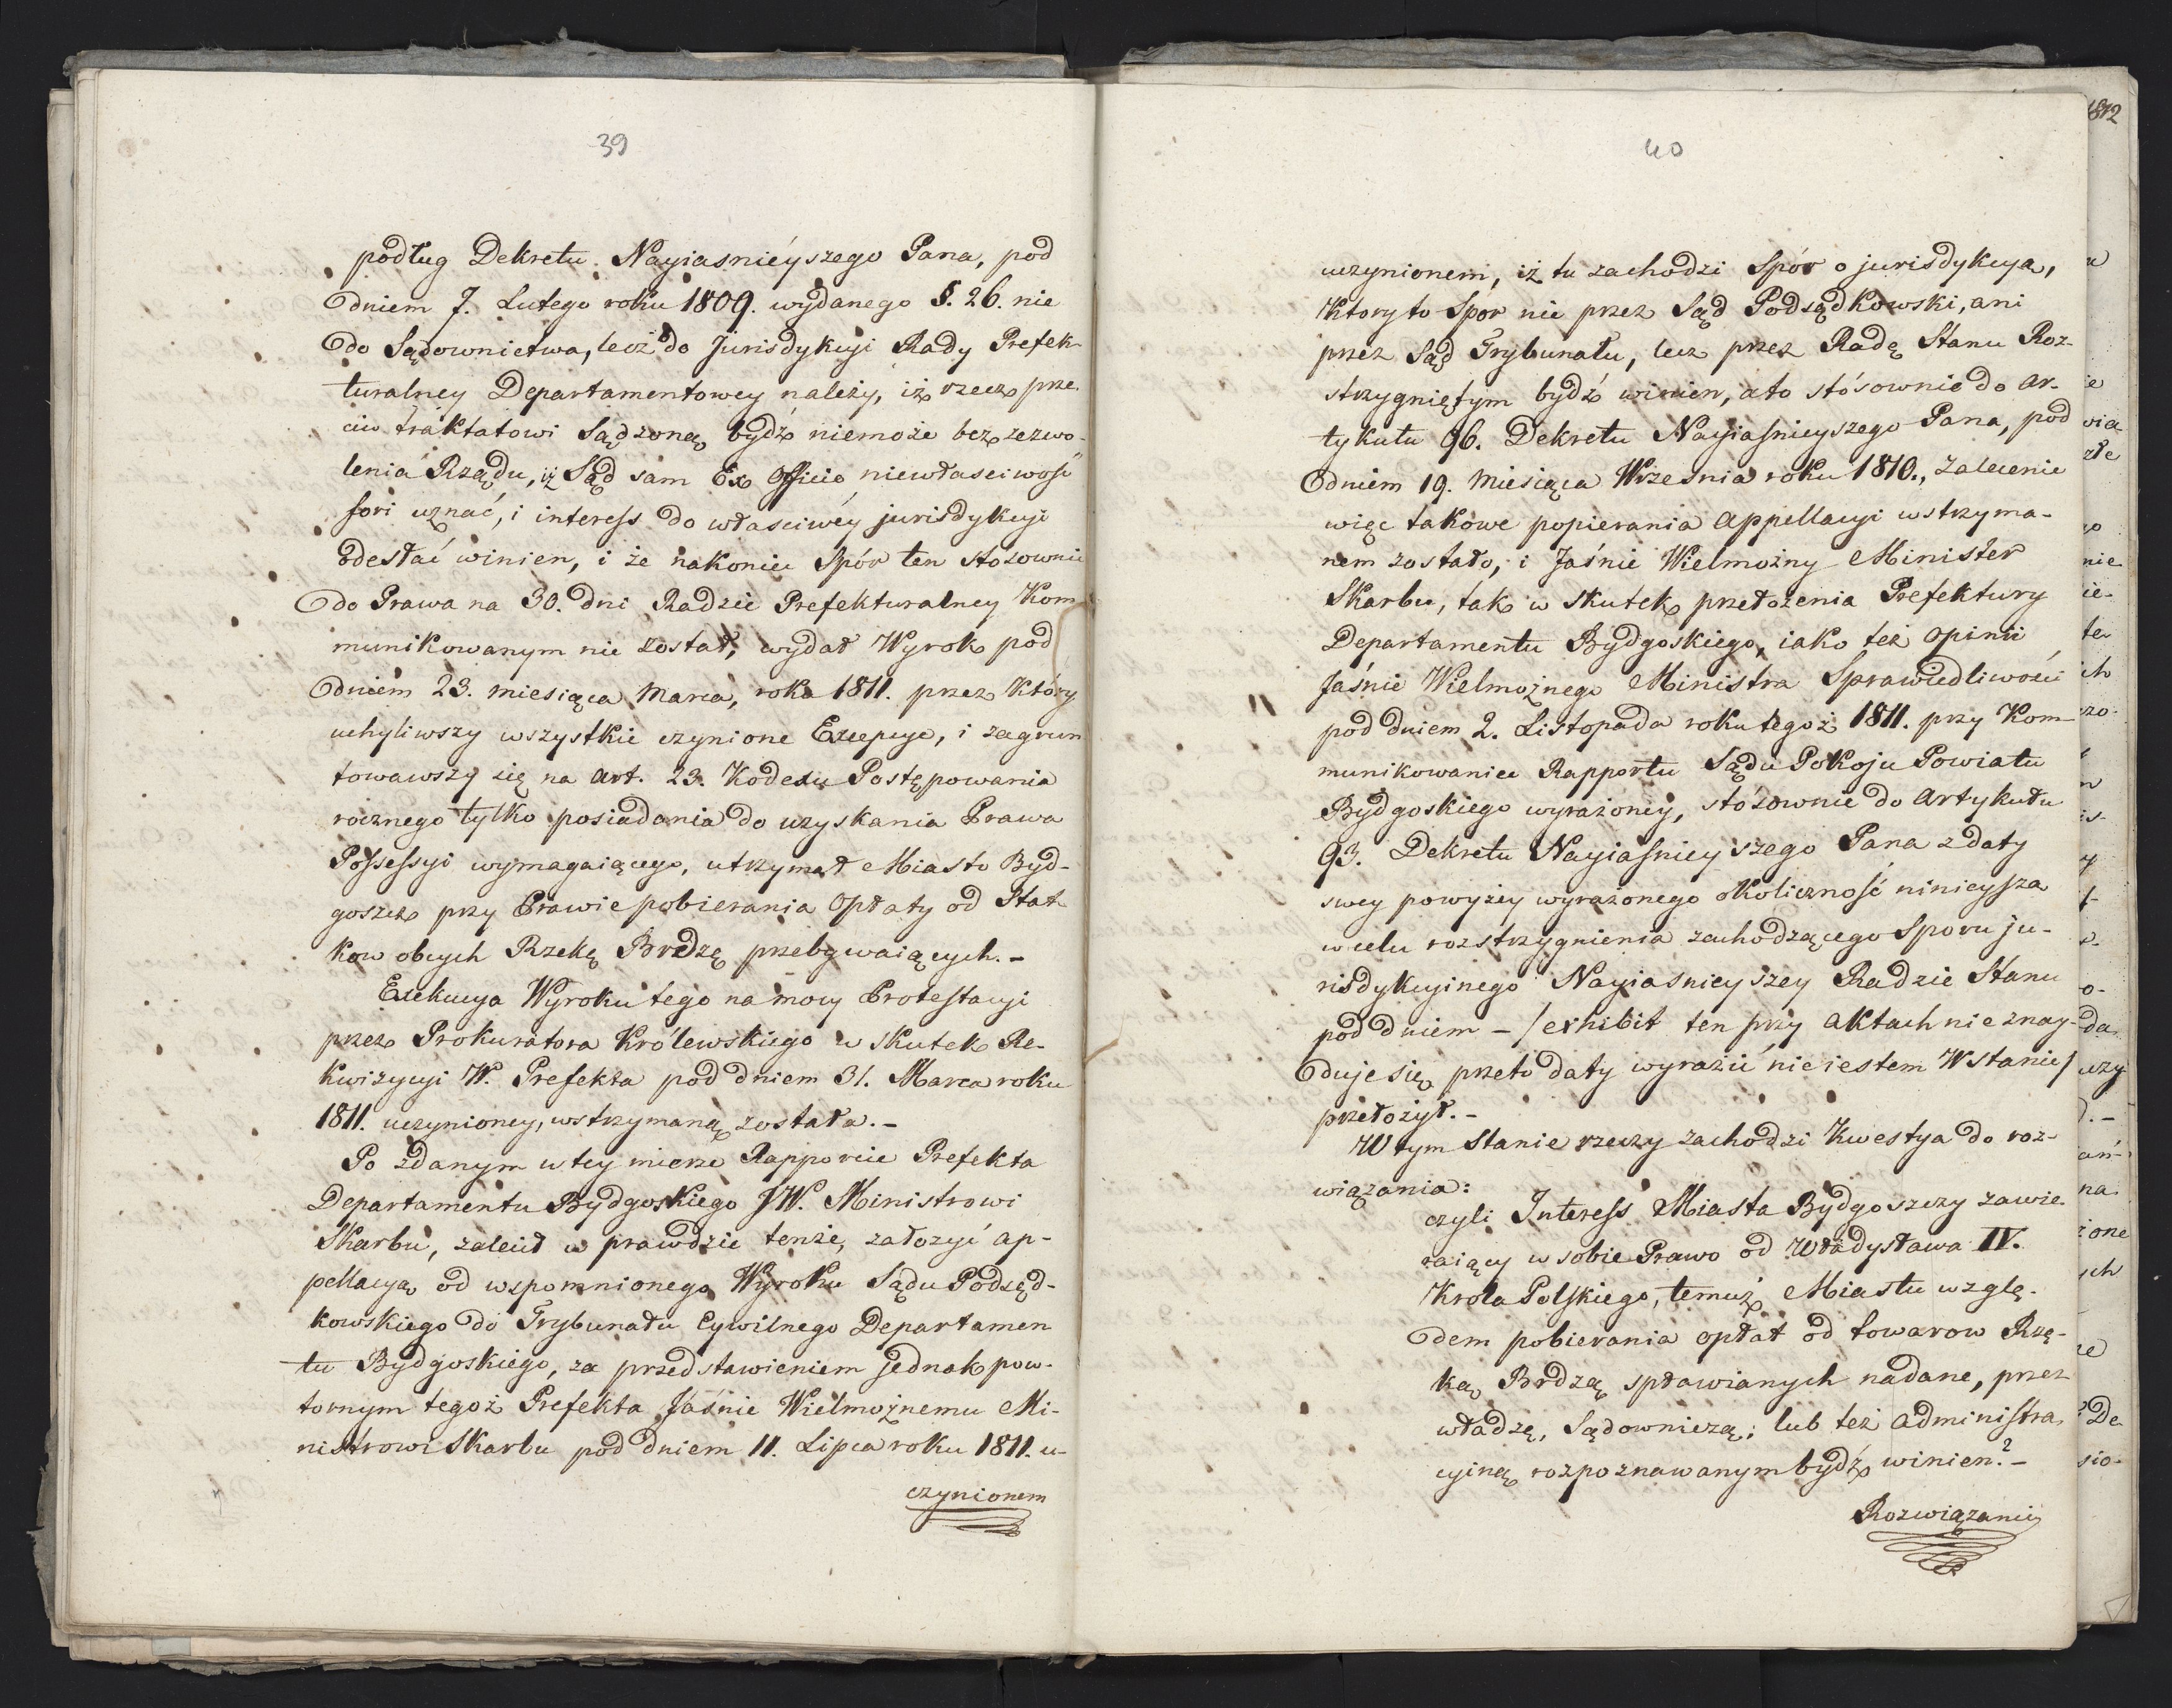 39
podług Dekretu Nayiasniéyszego Pana, pod
dniem 7. Lutego roku 1809. wydanego §. 26. nie
do Sądownictwa, lecz do Jurisdykcyi Rady Prefek-
turalney Departamentowey należy, iż rzecz prze-
ciw traktatowi Sądzoną bydź niemoże bez zezwo-
lenia Rządu, iż Sąd sam Ex Officio niewłasciwość
fori uznać, i interess do własciwéy jurisdykcyi
odesłać winien, i że nakoniec Spór ten stosownie
do Prawa na 30. dni Radzie Prefekturalney Kom
munikowanym nie został, wydał Wyrok pod
dniem 23. miesiąca Marca, roku 1811. przez który
uchyliwszy wszystkie czynione Excepcye, i zagrun
towawszy się na Art. 23. Kodexu Postępowania
rocznego tylko posiadania do uzyskania Prawa
Possessyi wymagaiącego, utrzymał Miasto Byd-
goszcz przy Prawie pobierania Opłaty od Stat-
kow obcych Rzekę Brdzę przebywaiących.-
Exekucya Wyroku tego na mocy Protestacyi
przez Prokuratora Królewskiego w skutek Re-
kwizycyi W. Prefekta pod dniem 31. Marca roku
1811. uczynioney, wstrzymaną została.-
Po zdanym w tey mierze Rapporcie Prefekta
Departamentu Bydgoskiego JW. Ministrowi
Skarbu, zalecił w prawdzie tenże, założyć ap-
pellacyą od wspomnionego Wyroku Sądu Podsęd-
kowskiego do Trybunału Cywilnego Departamen
tu Bydgoskiego, za przedstawieniem jednak pow-
tornym tegoż Prefekta Jaśnie Wielmożnemu Mi-
nistrowi Skarbu pod dniem 11. Lipca roku 1811. u-
czynionem
40
uczynionem, iż tu zachodzi Spór o jurisdykcya,
Ktory to Spor nie przez Sąd Podsądkowski, ani
przez Sąd Trybunału, lecz przez Radę Stanu Roz-
strzygniętym bydź winien, a to stósownie do Ar-
tykułu 96. Dekretu Nayiasnieyszego Pana, pod
dniem 19. Miesiąca Wrzesnia roku 1810., zalecenie
więc takowe popierania Appellacyi wstrzyma-
nem zostało, i Jaśnie Wielmożny Minister
Skarbu, tak w skutek przełożenia Prefektury
Departamentu Bydgoskiego, iako też Opinii
Jaśnie Wielmożnego Ministra Sprawiedliwości
pod dniem 2. Listopada roku tegoż 1811. przy Kom-
munikowaniu Rapportu Sądu Pokoju Powiatu
Bydgoskiego wyrażoney, stósownie do Artykułu
93. Dekretu Nayiasnieyszego Pana z daty
swey powyżey wyrażonego okoliczność ninieysza
w celu rozstrzygnienia zachodzącego Sporu ju-
risdykcyinego Nayiasnieyszey Radzie Stanu
pod dniem - / exhibit ten przy Aktach nie znay-
duje się przeto daty wyrazić nie iestem W stanie /
przełożył.-
W tym Stanie rzeczy zachodzi Kwestya do roz-
wiązania:
czyli Interess Miasta Bydgoszczy zawie-
raiący w sobie Prawo od Władysława IV.
Krola Polskiego, temuż Miastu wzglę-
dem pobierania opłat od towarow Rzę-
ką Brdzą spławianych nadane, przez
władzę, Sądowniczą; lub też administra
cyiną rozpoznawanym bydź winien?-
Rozwiązanie
1812